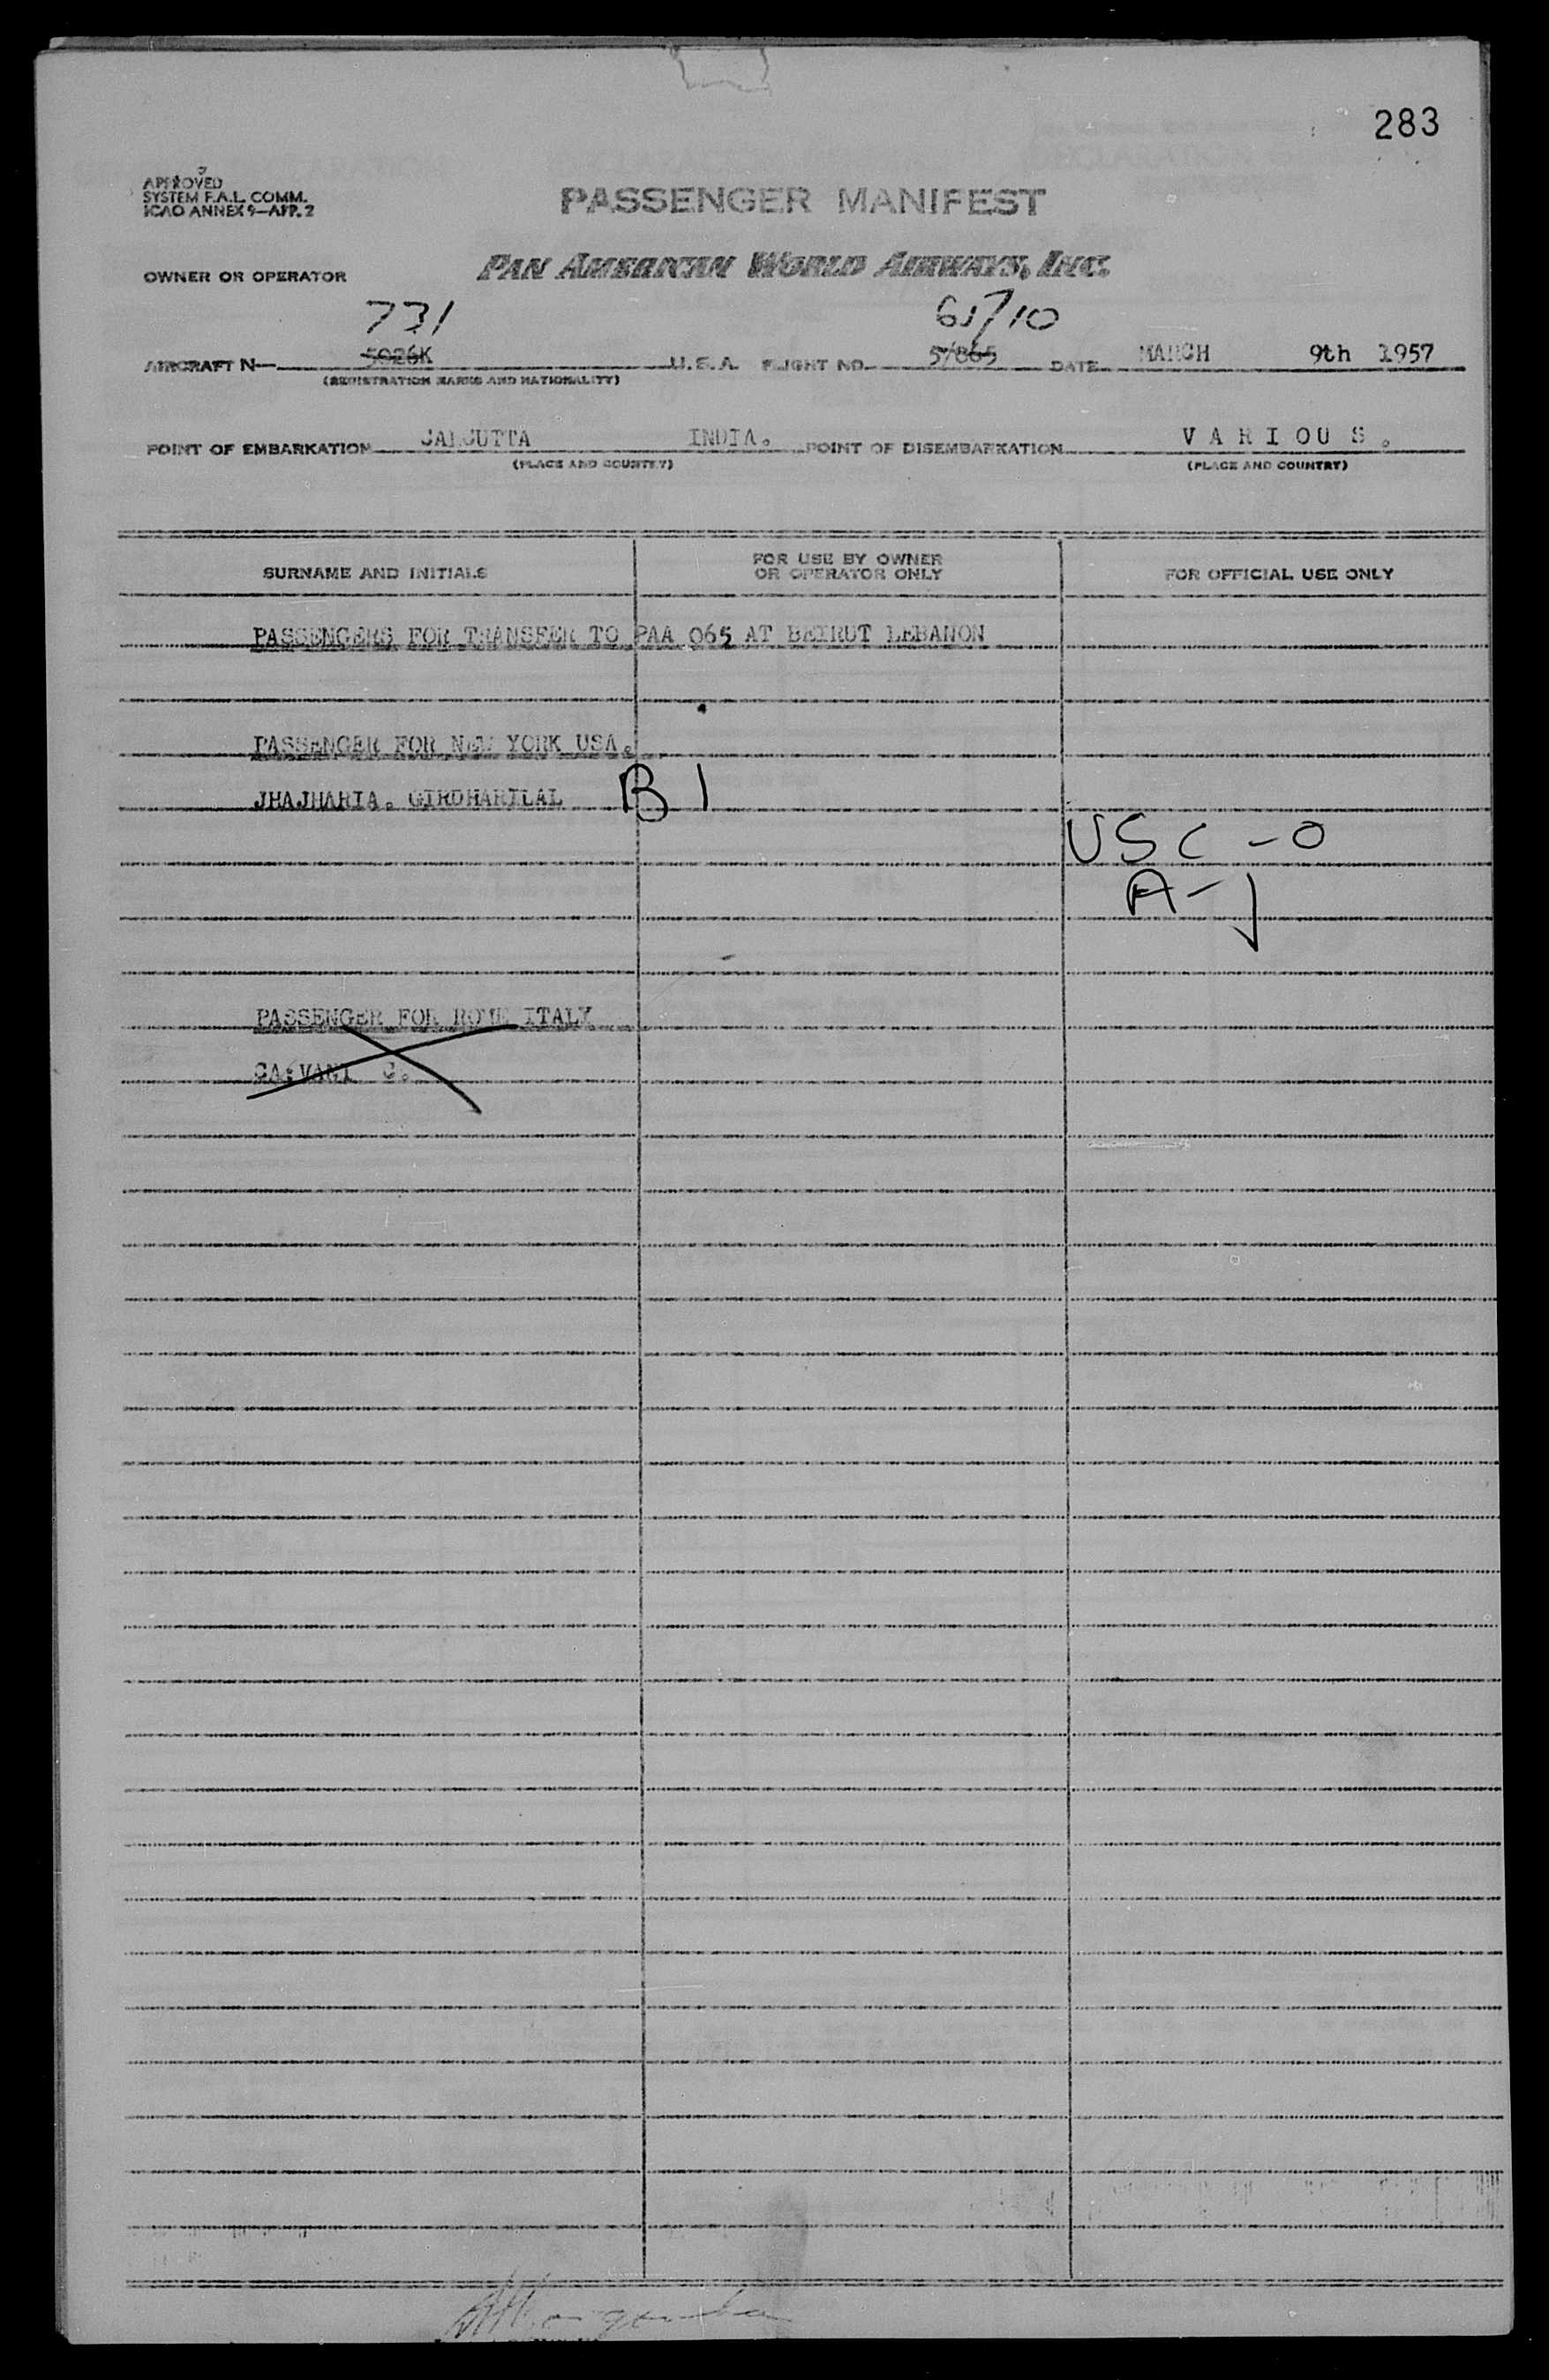 283
APPROVED
SYSTEM F.A.L. COMM.
ICAO ANNEX 9-APP. 2
PASSENGER MANIFEST
OWNER OR OPERATOR PAN AMERICAN WORLD AIRWAYS, INC.
731 65/10
AIRCRAFT N- 5026K U.S.A. FLIGHT NO. 57865 DATE MARCH 9th 1957
(REGISTRATION MARKS AND NATIONALITY)
POINT OF EMBARKATION CALCUTTA INDIA. POINT OF DISEMBARKATION VARIOUS.
(PLACE AND COUNTRY) (PLACE AND COUNTRY)
SURNAME AND INITIALS FOR USE BY OWNER OR OPERATOR ONLY FOR OFFICIAL USE ONLY
PASSENGERS FOR TRANSFER TO PAA 065 AT BEIRUT LEBANON
PASSENGER FOR NEW YORK USA.
JHAJHARIA. GIRDHARILAL B 1
USC - 0
A - 1
PASSENGER FOR ROME ITALY
C.